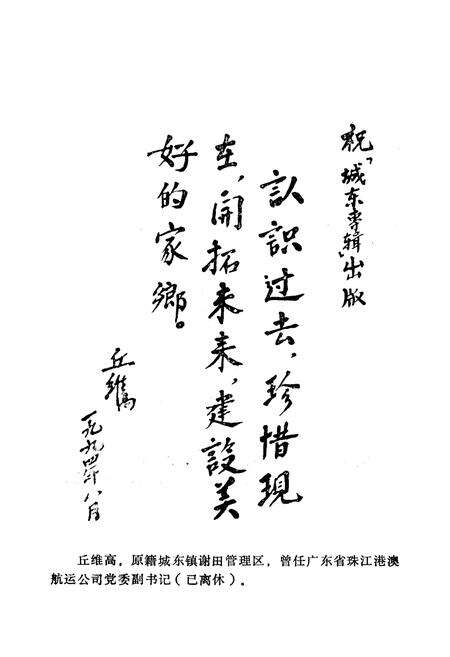 祝「城东专辑」出版
認識过去，珍惜現
在，開拓未来，建設美
好的家鄉。
丘维高
一九九四年八月
丘维高，原籍城东镇谢田管理区，曾任广东省珠江港澳
航运公司党委副书记（已离休）。